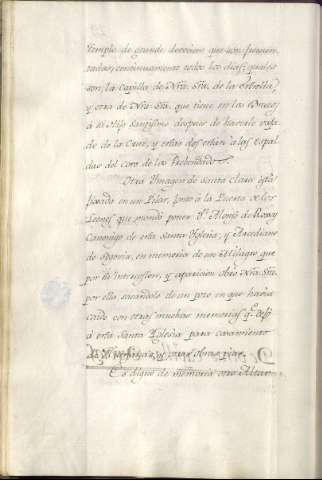 templo de grande devocion que son frequen-
tadas, continuamente todos los dias; quales
son, la Capilla de Nrã. Srã. de la Estrella,
y otra de Nrã. Srã. que tiene en los brazos
à su Hijo Santisimo despues de haverle vaxa-
do de la Cruz, y estas dos estàn à las espal-
das del Coro de los Prebendados.
Otra Ymagen de santa Clara està
fixada en un Pilar, junto à la Puerta de los
Leones que mandò poner Dn. Alonso de Roxas
Canonigo de esta Santa Yglesia, y Arcediano
de Segovia, en memoria de un Milagro que
por su intercesion, y aparicion obrò Nrã. Srã.
por ella, sacandole de un pozo en que havia
caido con otras muchas memorias q. dexò
à esta Santa Yglesia para casamiento
de y otras obras pias.
Es digno de memoria otro Altar